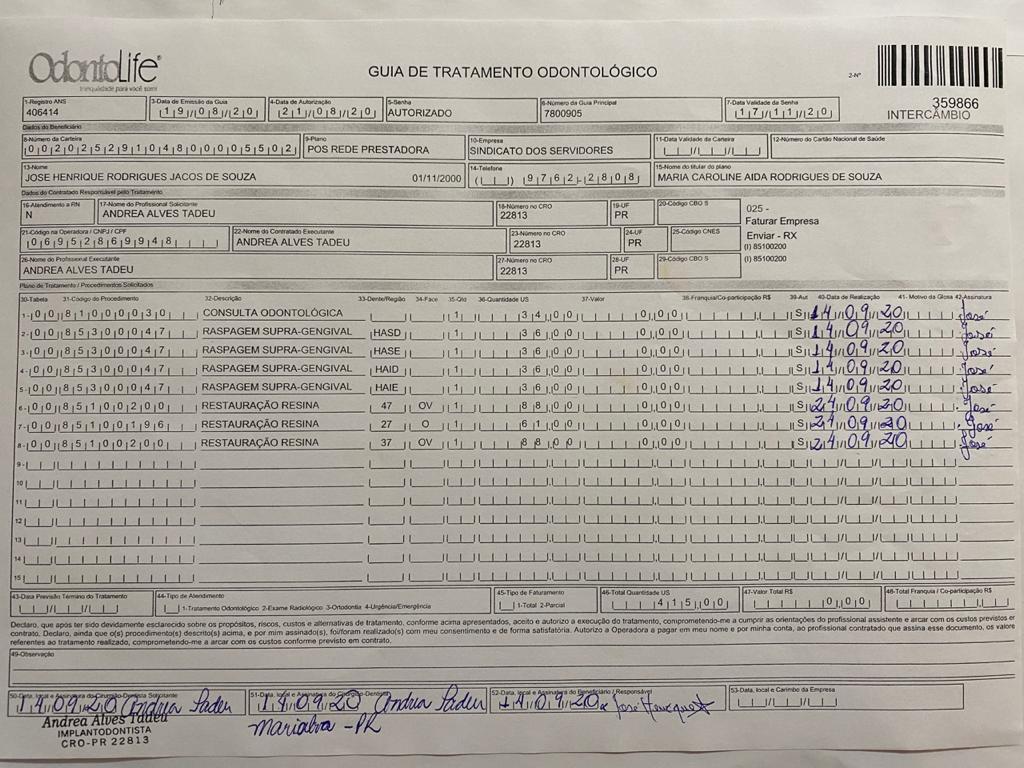 OdontoLife
tranquilidade para você sorrir
GUIA DE TRATAMENTO ODONTOLÓGICO
2-Nº
359866
INTERCÂMBIO
1-Registro ANS
406414
3-Data de Emissão da Guia
19/08/20
4-Data de Autorização
21/08/20
5-Senha
AUTORIZADO
6-Número da Guia Principal
7800905
7-Data Validade da Senha
17/11/20
Dados do Beneficiário
8-Número da Carteira
00202529104800005502
9-Plano
POS REDE PRESTADORA
10-Empresa
SINDICATO DOS SERVIDORES
11-Data Validade da Carteira
12-Número do Cartão Nacional de Saúde
13-Nome
JOSE HENRIQUE RODRIGUES JACOS DE SOUZA 01/11/2000
14-Telefone
( ) 9762-2808
15-Nome do titular do plano
MARIA CAROLINE AIDA RODRIGUES DE SOUZA
Dados do Contratado Responsável pelo Tratamento
16-Atendimento a RN
N
17-Nome do Profissional Solicitante
ANDREA ALVES TADEU
18-Número no CRO
22813
19-UF
PR
20-Código CBO S
025 -
Faturar Empresa
Enviar - RX
(I) 85100200
(I) 85100200
21-Código na Operadora / CNPJ / CPF
06952869948
22-Nome do Contratado Executante
ANDREA ALVES TADEU
23-Número no CRO
22813
24-UF
PR
25-Código CNES
26-Nome do Profissional Executante
ANDREA ALVES TADEU
27-Número no CRO
22813
28-UF
PR
29-Código CBO S
Plano de Tratamento / Procedimentos Solicitados
30-Tabela 31-Código do Procedimento 32-Descrição 33-Dente/Região 34-Face 35-Qtd 36-Quantidade US 37-Valor 38-Franquia/Co-participação R$ 39-Aut 40-Data de Realização 41- Motivo da Glosa 42-Assinatura
1- 00 81000030 CONSULTA ODONTOLÓGICA 1 34,00 0,00 S 14/09/20 José
2- 00 85300047 RASPAGEM SUPRA-GENGIVAL HASD 1 36,00 0,00 S 14/09/20 José
3- 00 85300047 RASPAGEM SUPRA-GENGIVAL HASE 1 36,00 0,00 S 14/09/20 José
4- 00 85300047 RASPAGEM SUPRA-GENGIVAL HAID 1 36,00 0,00 S 14/09/20 José
5- 00 85300047 RASPAGEM SUPRA-GENGIVAL HAIE 1 36,00 0,00 S 14/09/20 José
6- 00 85100200 RESTAURAÇÃO RESINA 47 OV 1 88,00 0,00 S 24/09/20 José
7- 00 85100196 RESTAURAÇÃO RESINA 27 O 1 61,00 0,00 S 24/09/20 José
8- 00 85100200 RESTAURAÇÃO RESINA 37 OV 1 88,00 0,00 S 24/09/20 José
9-
10
11
12
13
14
15
43-Data Previsão Término do Tratamento
44-Tipo de Atendimento
1-Tratamento Odontológico 2-Exame Radiológico 3-Ortodontia 4-Urgência/Emergência
45-Tipo de Faturamento
1-Total 2-Parcial
46-Total Quantidade US
415,00
47-Valor Total R$
0,00
48-Total Franquia / Co-participação R$
Declaro, que após ter sido devidamente esclarecido sobre os propósitos, riscos, custos e alternativas de tratamento, conforme acima apresentados, aceito e autorizo a execução do tratamento, comprometendo-me a cumprir as orientações do profissional assistente e arcar com os custos previstos em
contrato. Declaro, ainda que o(s) procedimento(s) descrito(s) acima, e por mim assinado(s), foi/foram realizado(s) com meu consentimento e de forma satisfatória. Autorizo a Operadora a pagar em meu nome e por minha conta, ao profissional contratado que assina esse documento, os valores
referentes ao tratamento realizado, comprometendo-me a arcar com os custos conforme previsto em contrato.
49-Observação
50-Data, local e Assinatura do Cirurgião-Dentista Solicitante
14/09/20 Andrea Tadeu
51-Data, local e Assinatura do Cirurgião-Dentista
14/09/20 Andrea Tadeu
52-Data, local e Assinatura do Beneficiário / Responsável
14/09/20
53-Data, local e Carimbo da Empresa
Marialva - PR
Andrea Alves Tadeu
IMPLANTODONTISTA
CRO-PR 22813